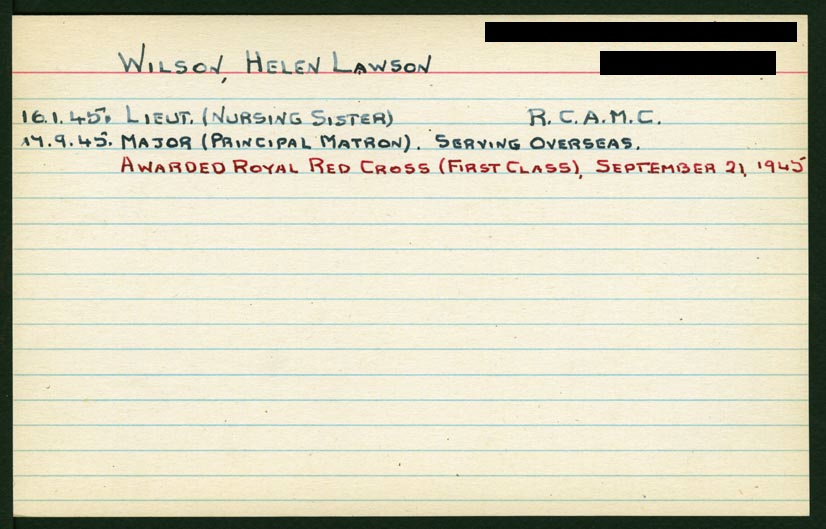 WILSON, HELEN LAWSON
16.1.45. LIEUT. (NURSING SISTER) R.C.A.M.C.
17.9.45. MAJOR (PRINCIPAL MATRON). SERVING OVERSEAS.
AWARDED ROYAL RED CROSS (FIRST CLASS), SEPTEMBER 21, 1945